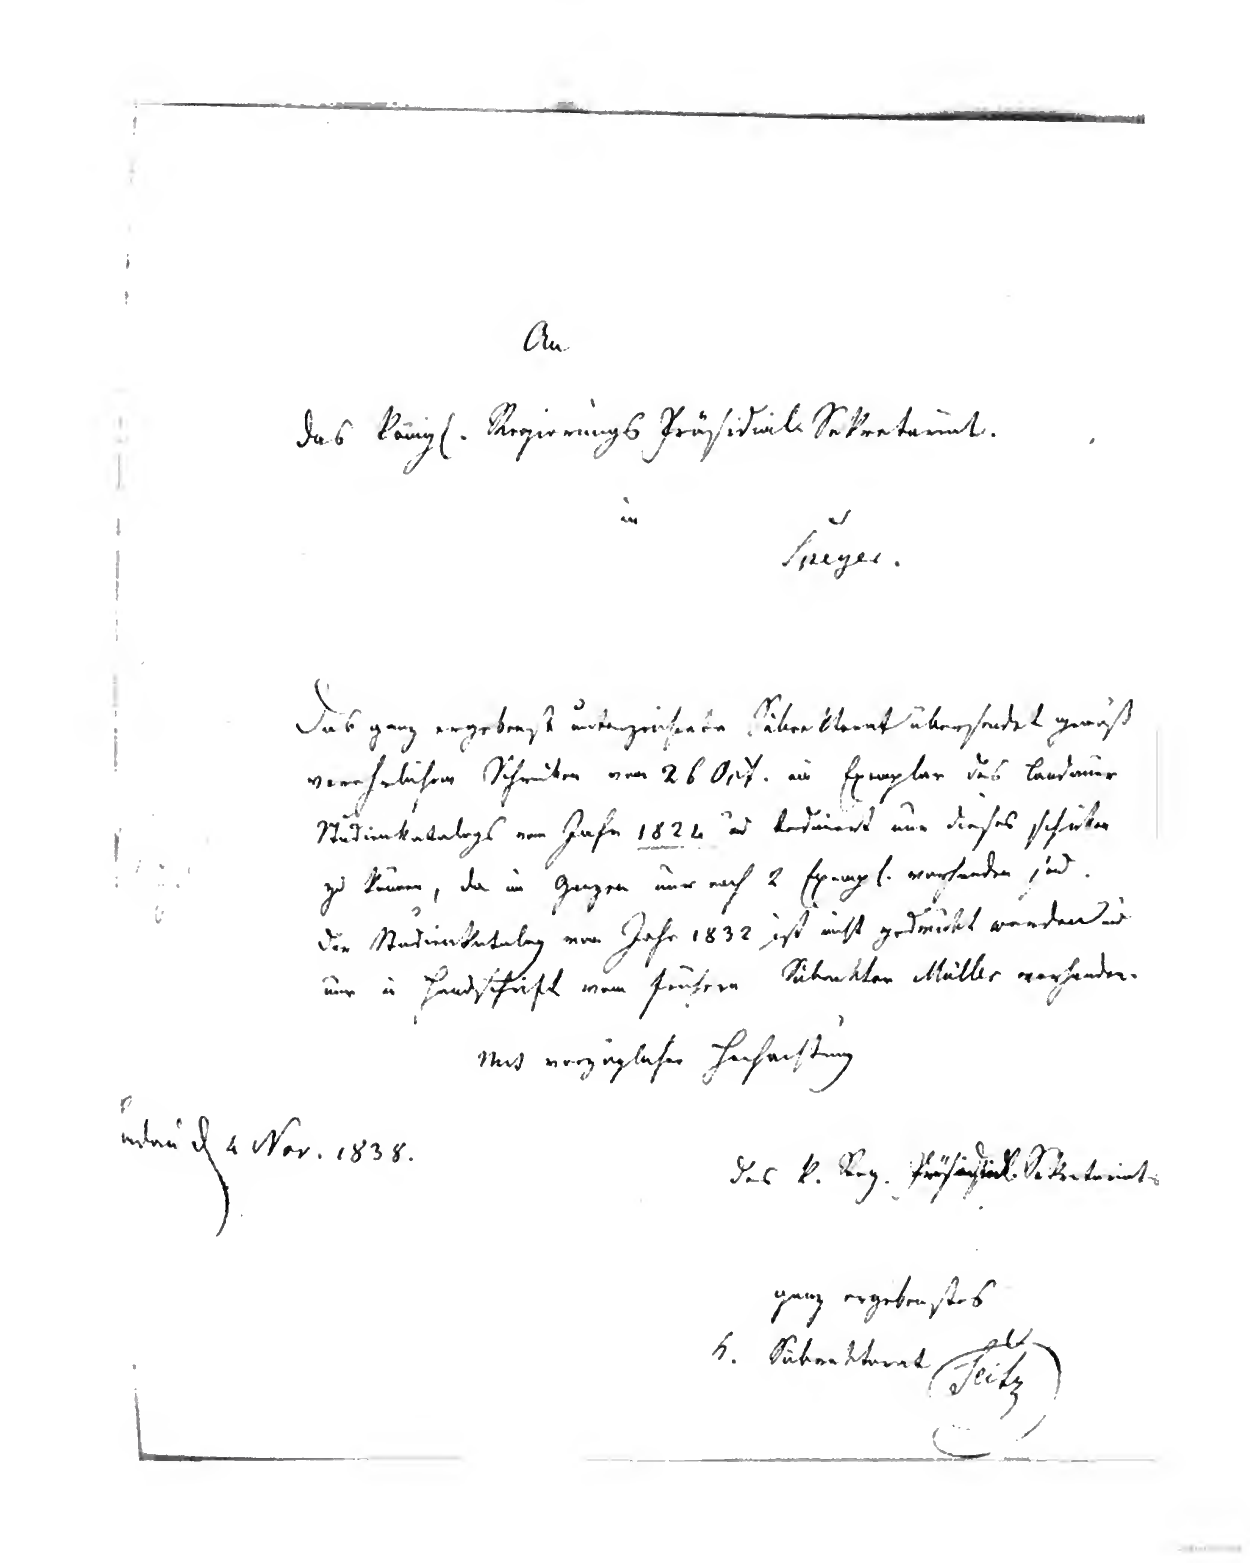 An
das königl. Regierungs Präsidial-Sekretariat.
in
Speyer.
Das ganz ergebenst unterzeichnete Subrektorat übersendet gemäß
verehrlichem Schreiben vom 26 Okt. ein Exemplar des Landauer
Studienkatalogs vom Jahr 1824 und bedauert nur dieses schicken
zu können, da im Ganzen nur noch 2 Exempl. vorhanden sind.
Der Studienkatalog vom Jahr 1832 ist nicht gedruckt worden und
nur in Handschrift vom frühern Subrektor Müller vorhanden.
Mit vorzüglicher Hochachtung
ndau d 4 Nov. 1838.
des k. Reg. Präsidial-Sekretariats
ganz ergebenstes
k. Subrektorat